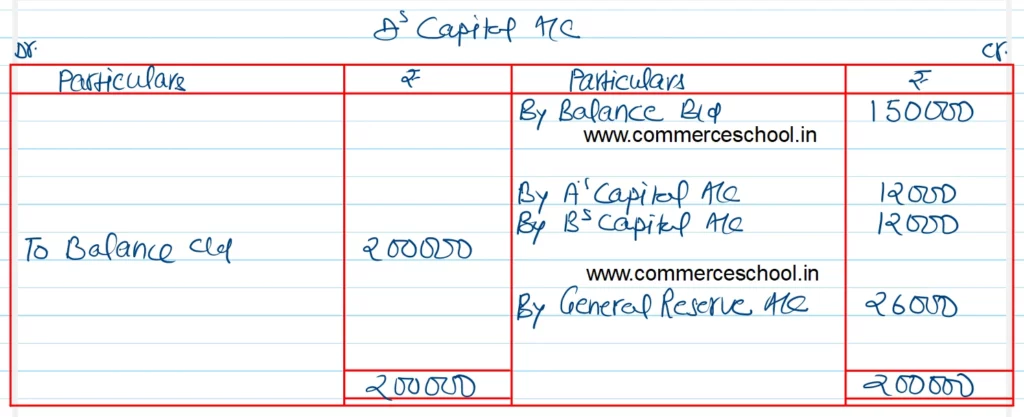 D's Capital A/C
Dr. Cr.
Particulars ₹ Particulars ₹
By Balance B/d 150000
www.commerceschool.in
By A's Capital A/C 12000
By B's Capital A/C 12000
To Balance c/d 200000
www.commerceschool.in
By General Reserve A/C 26000
200000 200000